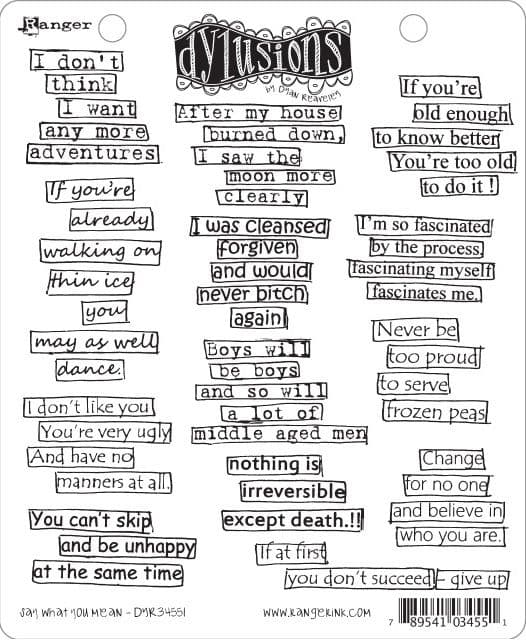 Ranger
dylusions
by Dyan Reaveley
I don't
think
I want
any more
adventures
If you're
already
walking on
thin ice
you
may as well
dance.
I don't like you
You're very ugly
And have no
manners at all.
You can't skip
and be unhappy
at the same time
After my house
burned down,
I saw the
moon more
clearly
I was cleansed
forgiven
and would
never bitch
again
Boys will
be boys
and so will
a lot of
middle aged men
nothing is
irreversible
except death.!!
If at first
you don't succeed – give up
If you're
old enough
to know better
You're too old
to do it !
I'm so fascinated
by the process,
fascinating myself
fascinates me.
Never be
too proud
to serve
frozen peas
Change
for no one
and believe in
who you are.
Say What You Mean - DYR34551
www.rangerink.com
7 89541 03455 1